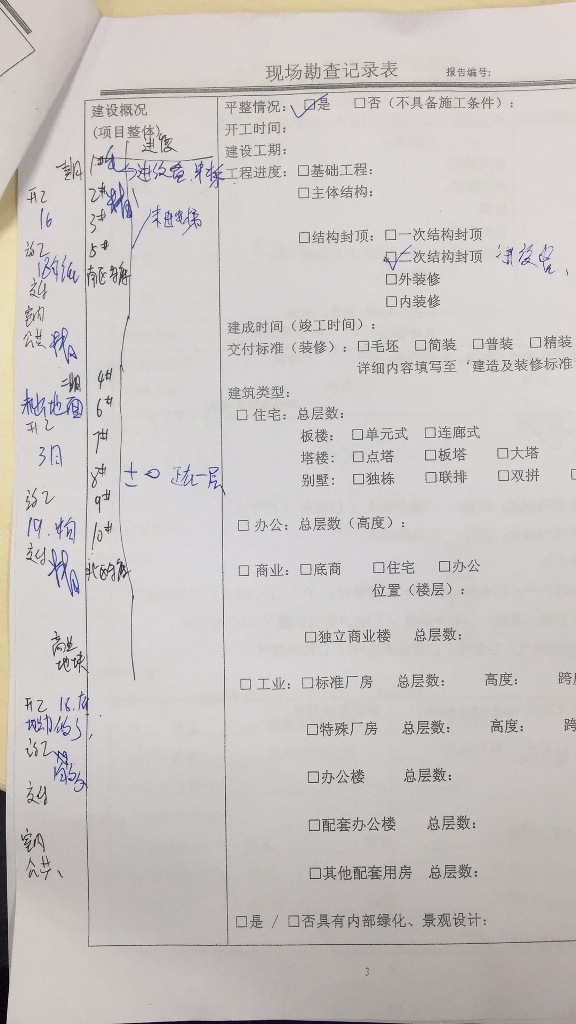 现场勘查记录表 报告编号:
建设概况
(项目整体)
进度
1#
2#
3#
5#
4#
6#
7#
8#
9#
10#
±0 正在一层
开工
16
竣工
交付
室内
公共
开工
3月
竣工
交付
商业
地块
开工
竣工
交付
室内
公共、
平整情况: □是 □否 (不具备施工条件):
开工时间:
建设工期:
工程进度: □基础工程:
□主体结构:
□结构封顶: □一次结构封顶
□二次结构封顶
□外装修
□内装修
建成时间 (竣工时间):
交付标准 (装修): □毛坯 □简装 □普装 □精装
详细内容填写至‘建造及装修标准
建筑类型:
□ 住宅: 总层数:
板楼: □单元式 □连廊式
塔楼: □点塔 □板塔 □大塔
别墅: □独栋 □联排 □双拼 □
□ 办公: 总层数 (高度):
□ 商业: □底商 □住宅 □办公
位置 (楼层):
□独立商业楼 总层数:
□ 工业: □标准厂房 总层数: 高度: 跨
□特殊厂房 总层数: 高度: 跨
□办公楼 总层数:
□配套办公楼 总层数:
□其他配套用房 总层数:
□是 / □否具有内部绿化、景观设计:
3